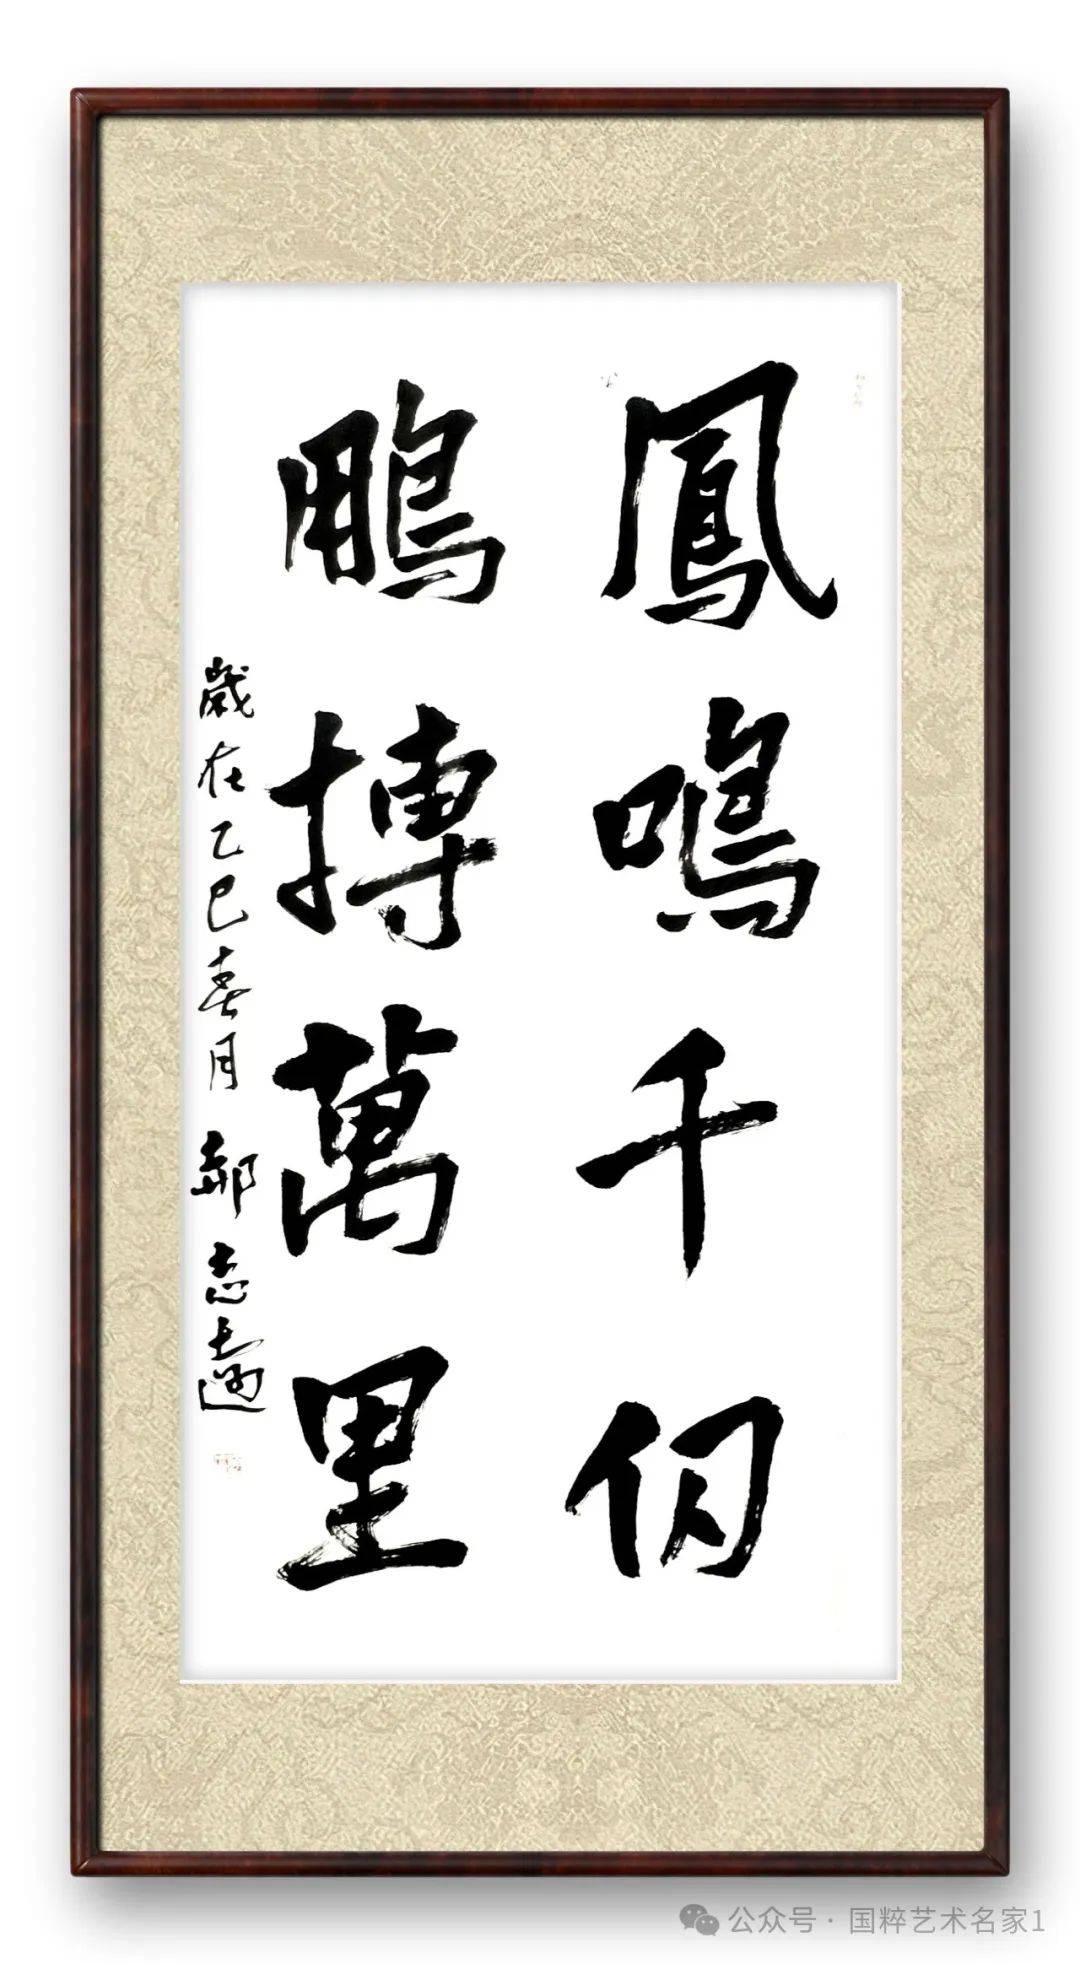 鳳鳴千仞
鵬摶萬里
歲在乙巳春月郝志邁
公众号·国粹艺术名家1